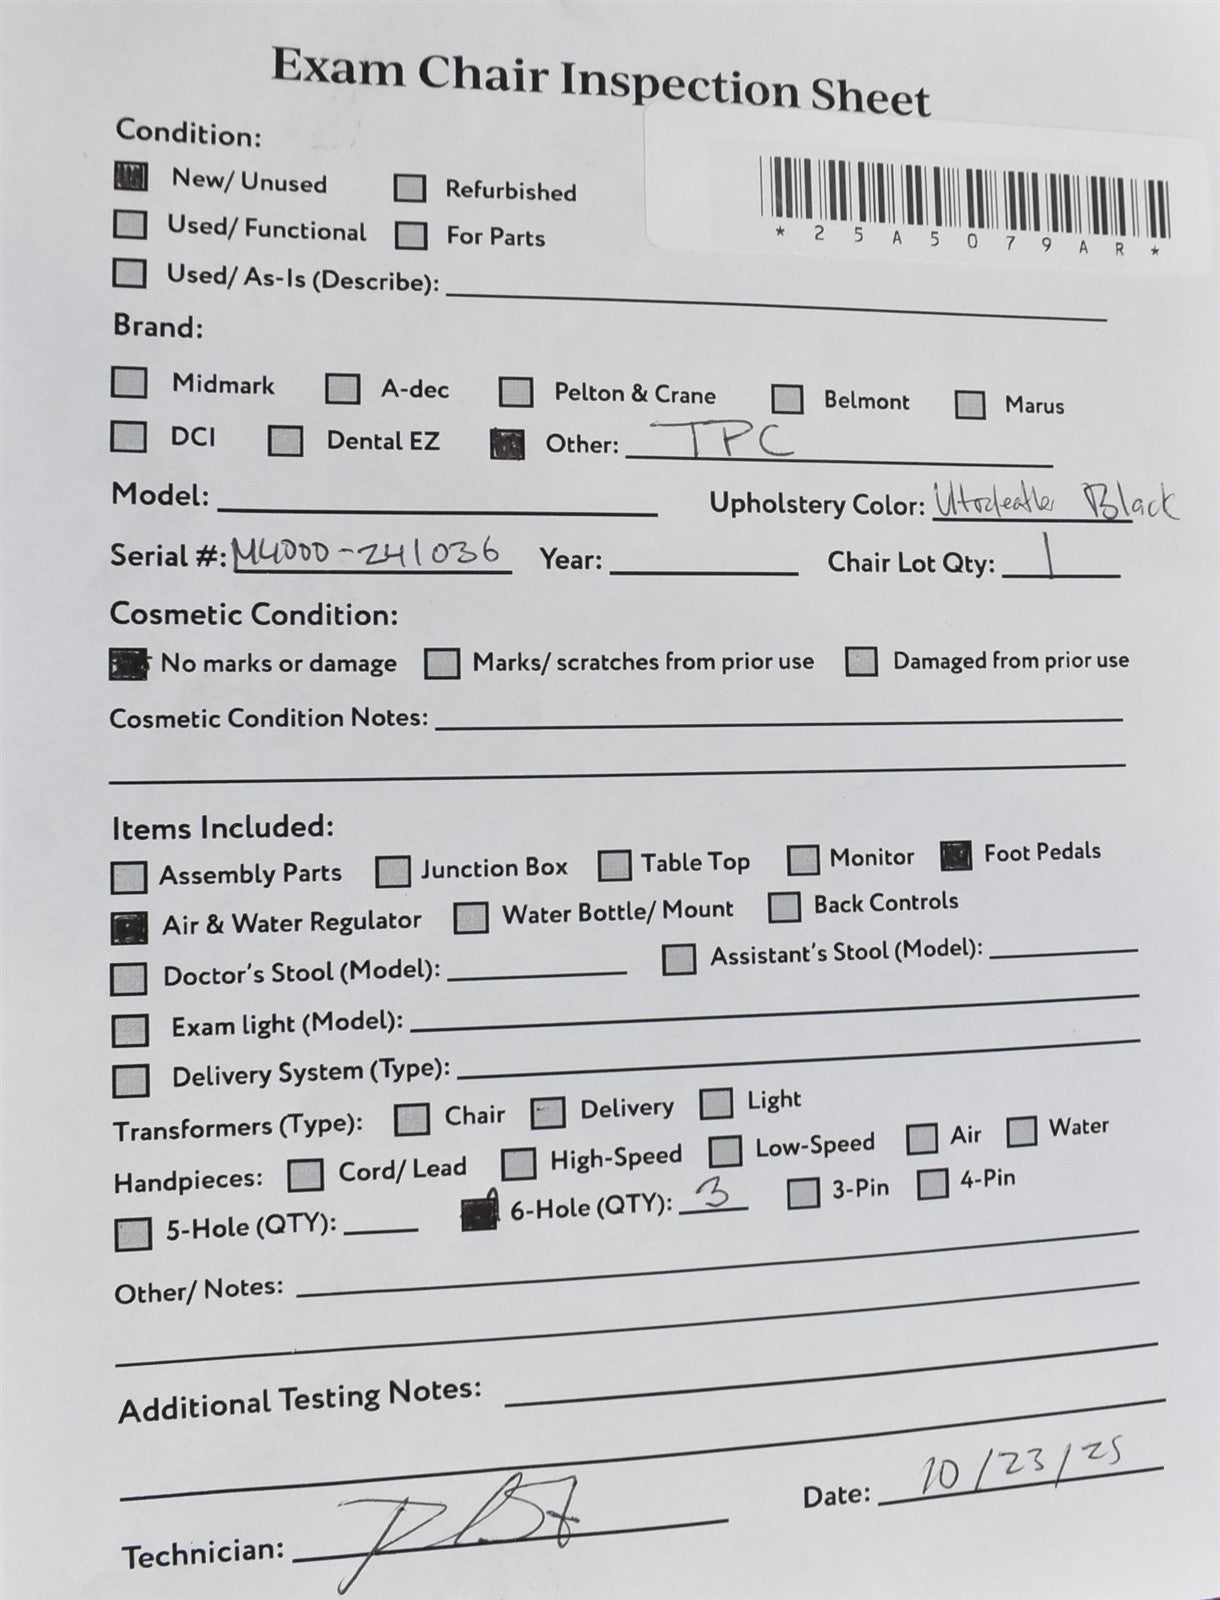 Exam Chair Inspection Sheet
Condition:
New/ Unused Refurbished
Used/ Functional For Parts
*25A5079AR*
Used/ As-Is (Describe):
Brand:
Midmark A-dec Pelton & Crane Belmont Marus
DCI Dental EZ Other: TPC
Model: Upholstery Color: Black
Serial #: M4000-241036 Year: Chair Lot Qty: 1
Cosmetic Condition:
No marks or damage Marks/ scratches from prior use Damaged from prior use
Cosmetic Condition Notes:
Items Included:
Assembly Parts Junction Box Table Top Monitor Foot Pedals
Air & Water Regulator Water Bottle/ Mount Back Controls
Doctor's Stool (Model): Assistant's Stool (Model):
Exam light (Model):
Delivery System (Type):
Transformers (Type): Chair Delivery Light
Handpieces: Cord/ Lead High-Speed Low-Speed Air Water
5-Hole (QTY): 6-Hole (QTY): 3 3-Pin 4-Pin
Other/ Notes:
Additional Testing Notes:
Technician: Date: 10/23/25